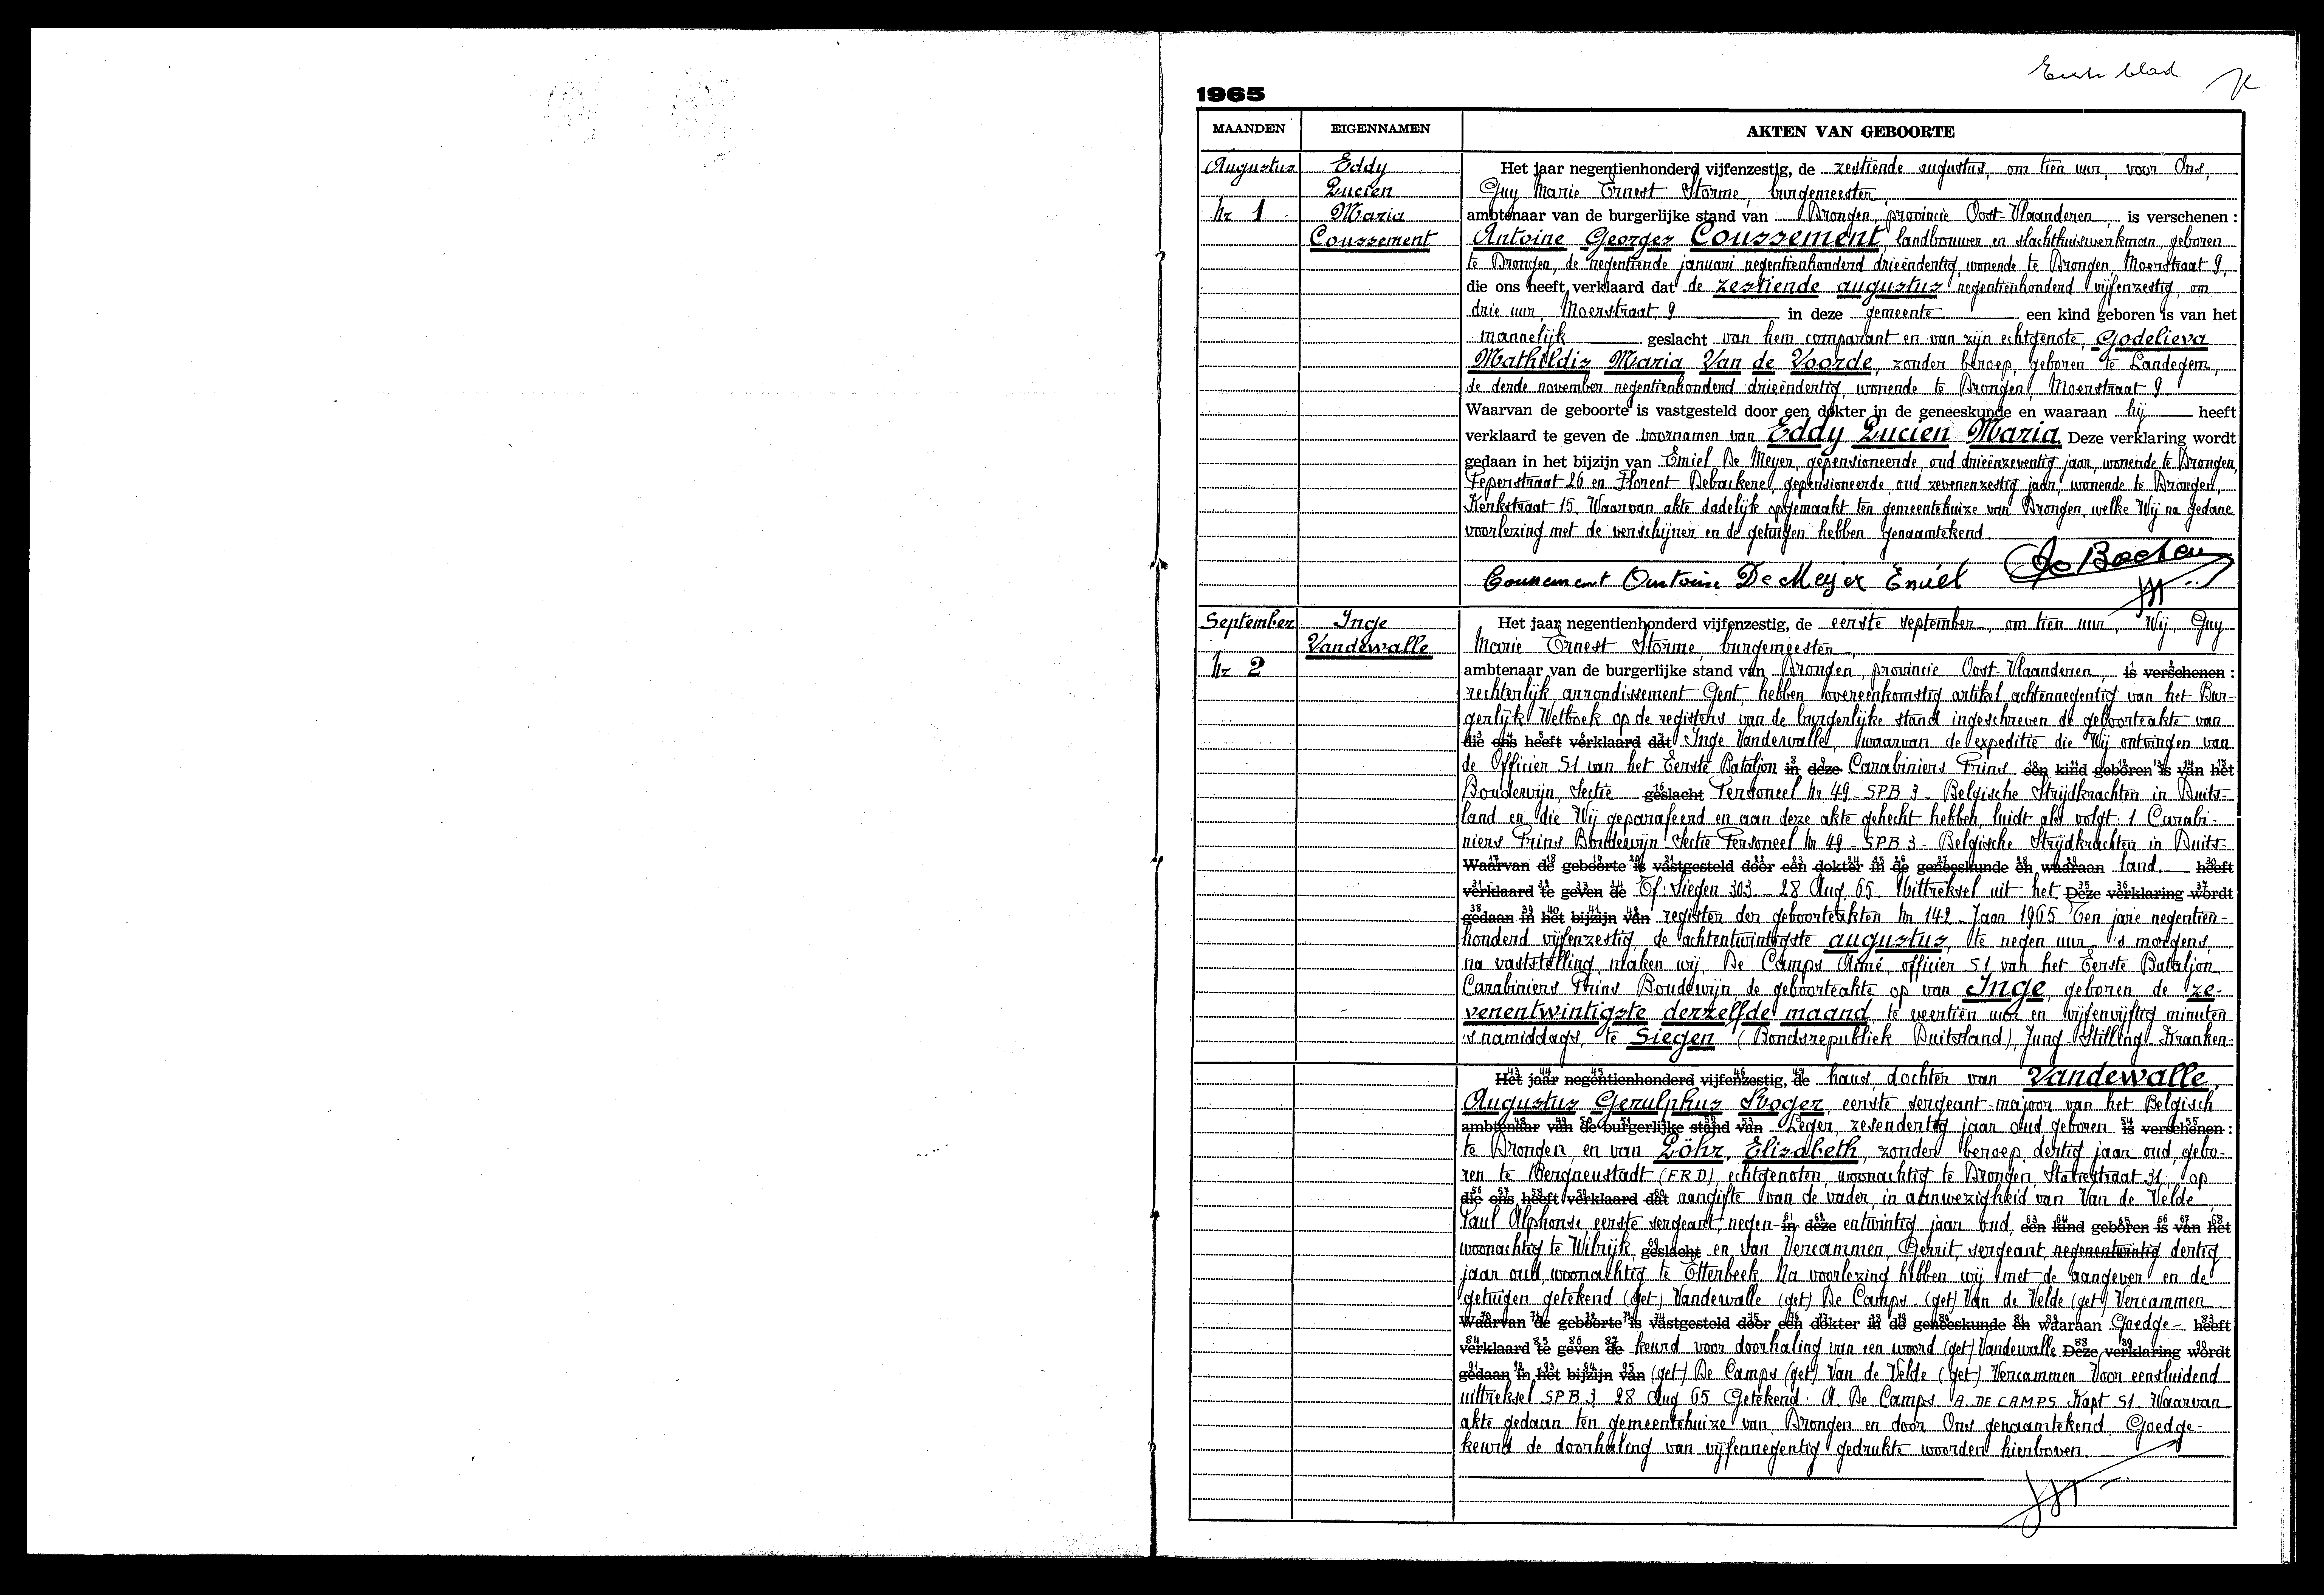 Eerste blad
1965
MAANDEN EIGENNAMEN AKTEN VAN GEBOORTE
Augustus Eddy Het jaar negentienhonderd vijfenzestig, de zestiende augustus, om tien uur, voor Ons,
Lucien Guy Marie Ernest Storme, burgemeester
Nr 1 Maria ambtenaar van de burgerlijke stand van Drongen, provincie Oost-Vlaanderen, is verschenen :
Coussement Antoine Georges Coussement, landbouwer en slachthuiswerkman, geboren
te Drongen, de negentiende januari negentienhonderd drieëndertig, wonende te Drongen, Moerstraat 9,
die ons heeft verklaard dat de zestiende augustus negentienhonderd vijfenzestig, om
drie uur, Moerstraat 9 in deze gemeente een kind geboren is van het
mannelijk geslacht van hem comparant en van zijn echtgenote, Godelieva
Mathildis Maria Van de Voorde, zonder beroep, geboren te Landegem,
de derde november negentienhonderd drieëndertig, wonende te Drongen, Moerstraat 9
Waarvan de geboorte is vastgesteld door een dokter in de geneeskunde en waaraan hij heeft
verklaard te geven de voornamen van Eddy Lucien Maria Deze verklaring wordt
gedaan in het bijzijn van Emiel De Meyer, gepensioneerde, oud drieënzeventig jaar, wonende te Drongen,
Peperstraat 26 en Florent Debackere, gepensioneerde, oud zevenenzestig jaar, wonende te Drongen,
Kerkstraat 15. Waarvan akte dadelijk opgemaakt ten gemeentehuize van Drongen, welke Wij na gedane
voorlezing met de verschijner en de getuigen hebben genaamtekend
Coussement Antoine De Meyer Emiel
September Inge Het jaar negentienhonderd vijfenzestig, de eerste september, om tien uur, Wij, Guy
Vandewalle Marie Ernest Storme, burgemeester
Nr 2 ambtenaar van de burgerlijke stand van Drongen, provincie Oost-Vlaanderen, is verschenen :
rechterlijk arrondissement Gent, hebben overeenkomstig artikel achtennegentig van het Bur-
gerlijk Wetboek op de registers van de burgerlijke stand ingeschreven de geboorteakte van
die ons heeft verklaard dat Inge Vandewalle, waarvan de expeditie die Wij ontvingen van
de Officier S1 van het Eerste Bataljon in deze Carabiniers Prins een kind geboren is van het
Boudewijn, Sectie geslacht Personeel Nr 49 - SPB 3 - Belgische Strijdkrachten in Duits-
land en die Wij geparafeerd en aan deze akte gehecht hebben, luidt als volgt: 1 Carabi-
niers Prins Boudewijn Sectie Personeel Nr 49 - SPB 3 - Belgische Strijdkrachten in Duits-
Waarvan de geboorte is vastgesteld door een dokter in de geneeskunde en waaraan land. heeft
verklaard te geven de Tf: Siegen 303 - 28 Aug 65 Uittreksel uit het Deze verklaring wordt
gedaan in het bijzijn van register der geboorteakten Nr 142 - Jaar 1965 Ten jare negentien-
honderd vijfenzestig, de achtentwintigste augustus, te negen uur 's morgens,
na vaststelling, maken wij, De Camps Aimé, officier S1 van het Eerste Bataljon
Carabiniers Prins Boudewijn, de geboorteakte op van Inge, geboren de ze-
venentwintigste derzelfde maand, te veertien uur en vijfenvijftig minuten
's namiddags, te Siegen (Bondsrepubliek Duitsland), Jung Stilling Kranken-
Het jaar negentienhonderd vijfenzestig, de haus, dochter van Vandewalle,
Augustus Gerulphus Roger, eerste sergeant-majoor van het Belgisch
ambtenaar van de burgerlijke stand van Leger, zesendertig jaar oud geboren is verschenen :
te Drongen, en van Löhr, Elisabeth, zonder beroep, dertig jaar oud, gebo-
ren te Bergneustadt (F.R.D), echtgenoten, woonachtig te Drongen, Statiestraat 31, op
die ons heeft verklaard dat aangifte van de vader, in aanwezigheid van Van de Velde
Paul Alphonse eerste sergeant, negen- in deze entwintig jaar oud, een kind geboren is van het
woonachtig te Wilrijk, geslacht en van Vercammen, Gerrit, sergeant, negenentwintig dertig
jaar oud, woonachtig te Etterbeek. Na voorlezing hebben wij met de aangever en de
getuigen getekend (get) Vandewalle (get) De Camps (get) Van de Velde (get) Vercammen
Waarvan de geboorte is vastgesteld door een dokter in de geneeskunde en waaraan Goedge- heeft
verklaard te geven de keurd voor doorhaling van een woord (get) Vandewalle Deze verklaring wordt
gedaan in het bijzijn van (get) De Camps (get) Van de Velde (get) Vercammen Voor eensluidend
uittreksel SPB 3 28 Aug 65 Getekend. A. De Camps. A. DE CAMPS Kapt S1. Waarvan
akte gedaan ten gemeentehuize van Drongen en door Ons genaamtekend. Goedge-
keurd de doorhaling van vijfennegentig gedrukte woorden hierboven.